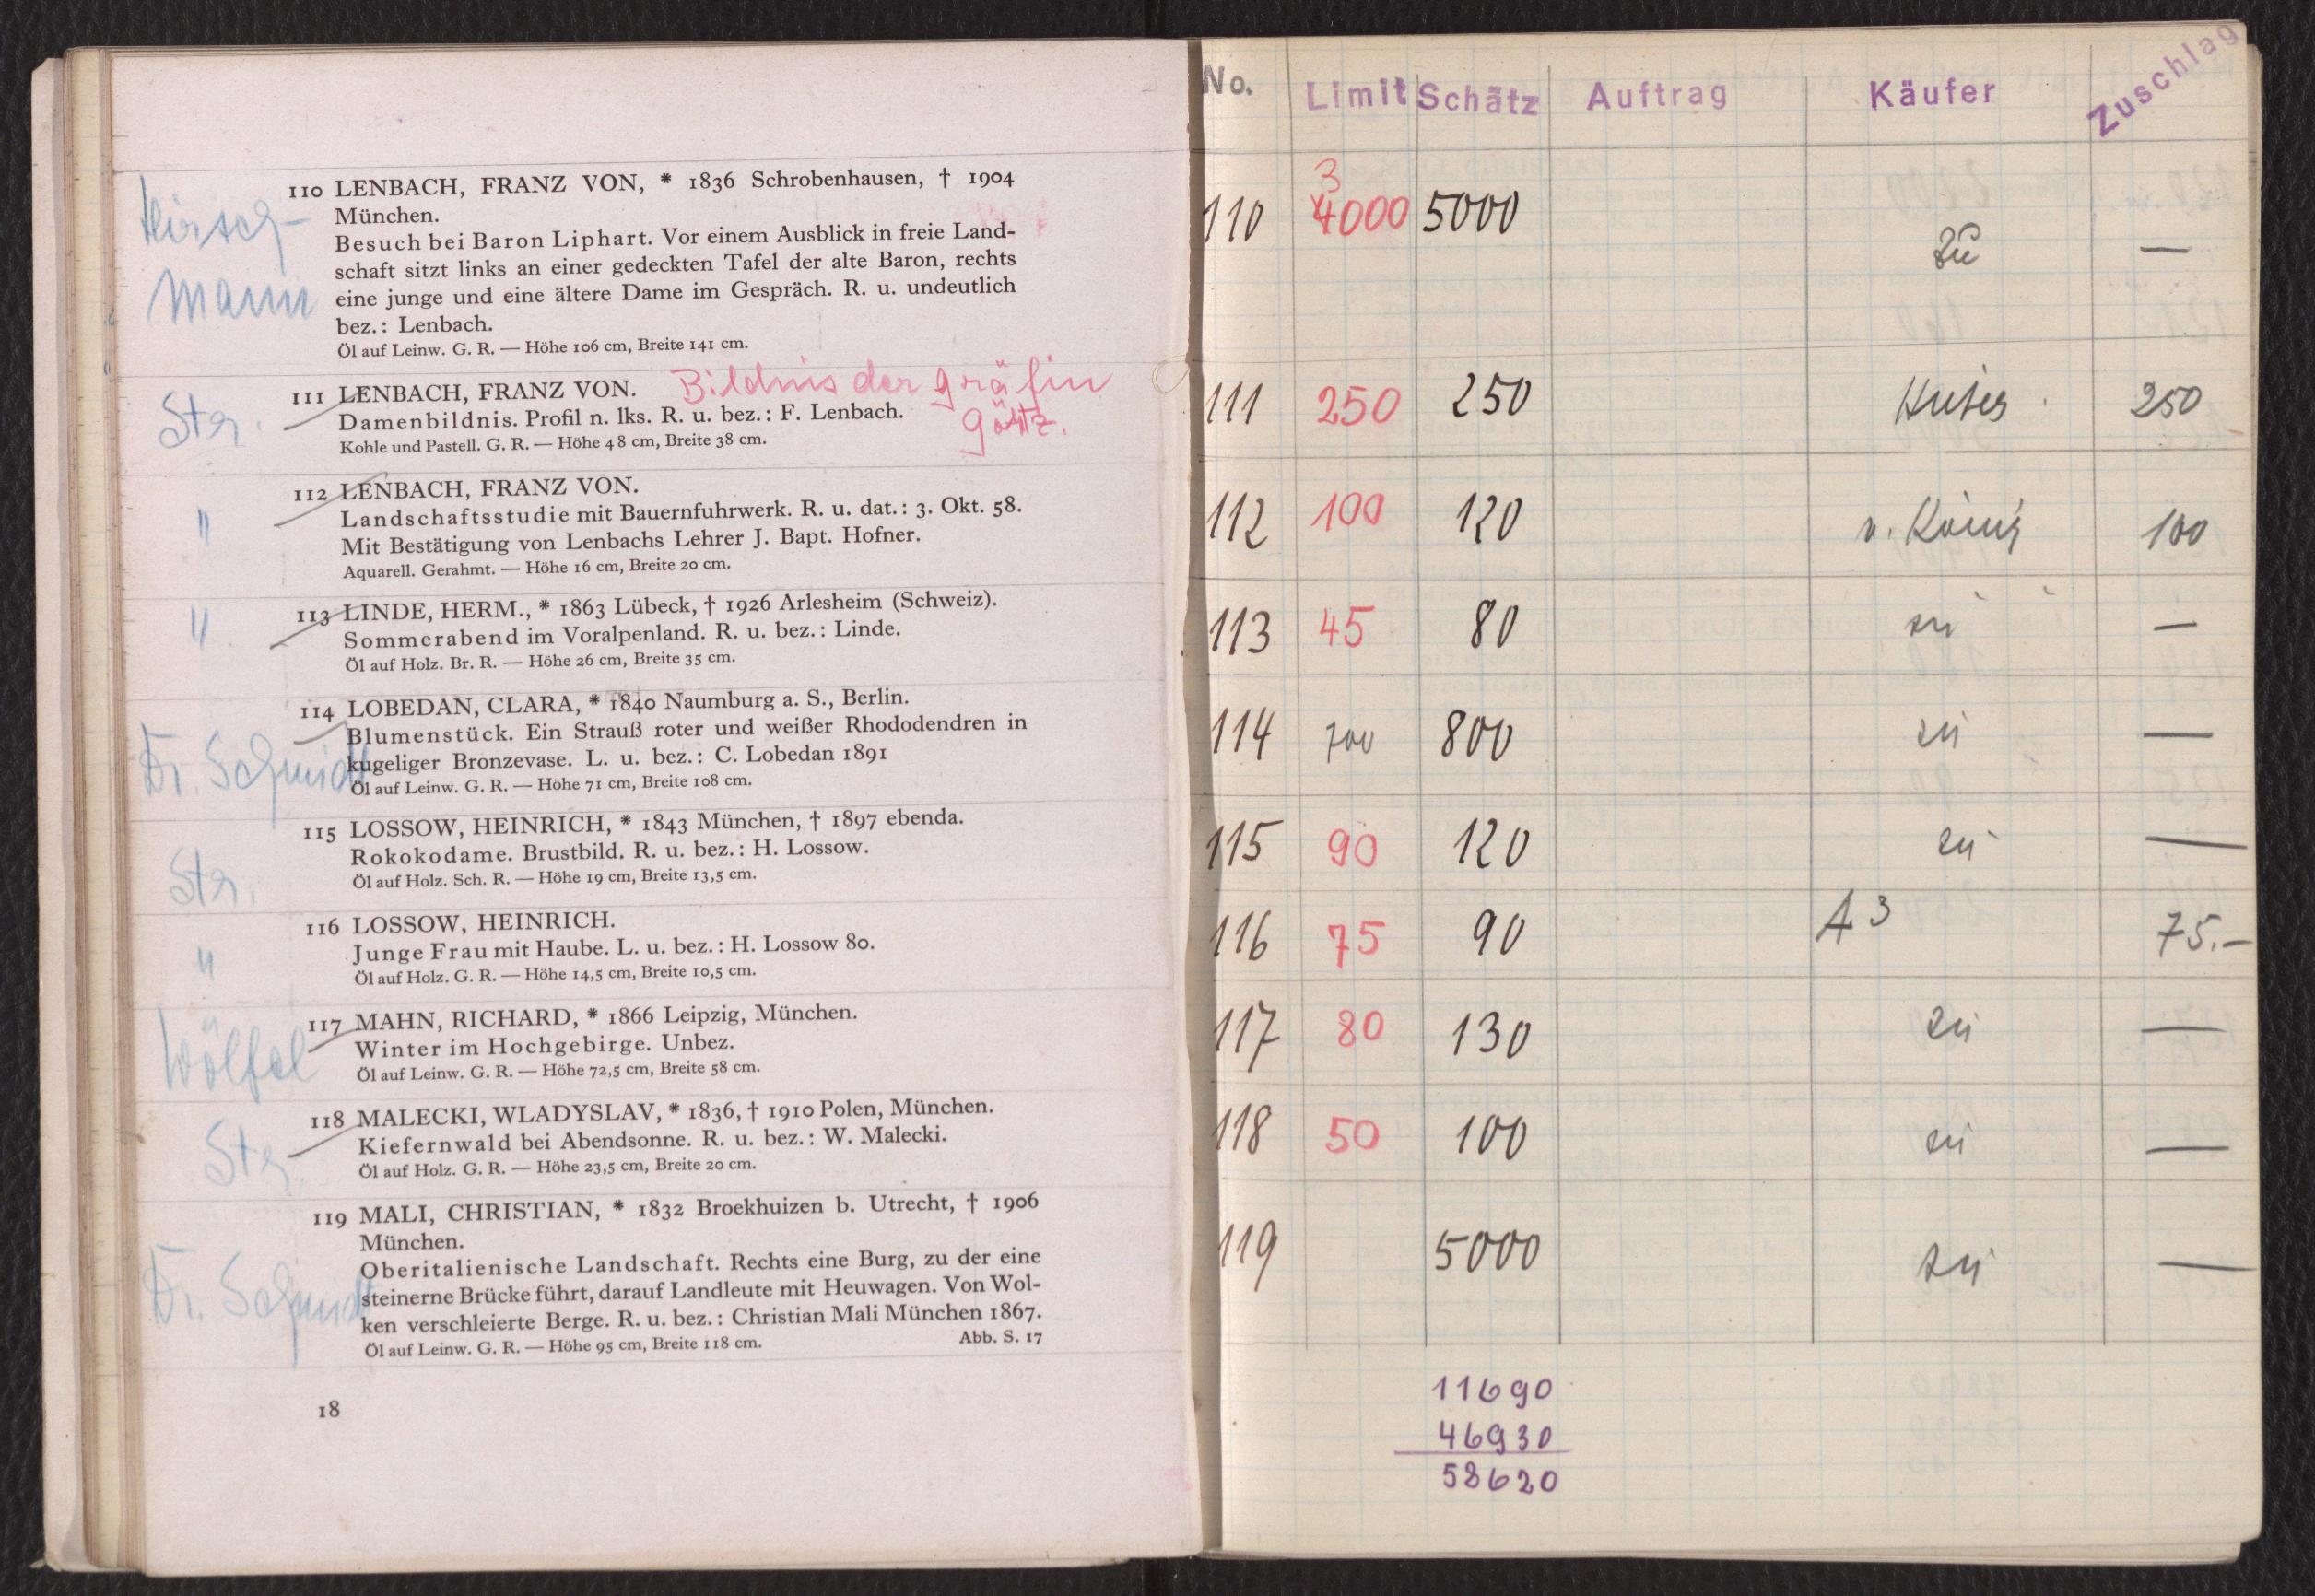 Hirsch-
mann
110 LENBACH, FRANZ VON, * 1836 Schrobenhausen, † 1904
München.
Besuch bei Baron Liphart. Vor einem Ausblick in freie Land-
schaft sitzt links an einer gedeckten Tafel der alte Baron, rechts
eine junge und eine ältere Dame im Gespräch. R. u. undeutlich
bez.: Lenbach.
Öl auf Leinw. G. R. — Höhe 106 cm, Breite 141 cm.
Str.
111 LENBACH, FRANZ VON. Bildnis der gräfin
Damenbildnis. Profil n. lks. R. u. bez.: F. Lenbach. görtz.
Kohle und Pastell. G. R. — Höhe 48 cm, Breite 38 cm.
"
112 LENBACH, FRANZ VON.
Landschaftsstudie mit Bauernfuhrwerk. R. u. dat.: 3. Okt. 58.
Mit Bestätigung von Lenbachs Lehrer J. Bapt. Hofner.
Aquarell. Gerahmt. — Höhe 16 cm, Breite 20 cm.
"
113 LINDE, HERM., * 1863 Lübeck, † 1926 Arlesheim (Schweiz).
Sommerabend im Voralpenland. R. u. bez.: Linde.
Öl auf Holz. Br. R. — Höhe 26 cm, Breite 35 cm.
Dr. Schmidt
114 LOBEDAN, CLARA, * 1840 Naumburg a. S., Berlin.
Blumenstück. Ein Strauß roter und weißer Rhododendren in
kugeliger Bronzevase. L. u. bez.: C. Lobedan 1891
Öl auf Leinw. G. R. — Höhe 71 cm, Breite 108 cm.
Str.
115 LOSSOW, HEINRICH, * 1843 München, † 1897 ebenda.
Rokokodame. Brustbild. R. u. bez.: H. Lossow.
Öl auf Holz. Sch. R. — Höhe 19 cm, Breite 13,5 cm.
"
116 LOSSOW, HEINRICH.
Junge Frau mit Haube. L. u. bez.: H. Lossow 80.
Öl auf Holz. G. R. — Höhe 14,5 cm, Breite 10,5 cm.
Wölfel
117 MAHN, RICHARD, * 1866 Leipzig, München.
Winter im Hochgebirge. Unbez.
Öl auf Leinw. G. R. — Höhe 72,5 cm, Breite 58 cm.
Str
118 MALECKI, WLADYSLAV, * 1836, † 1910 Polen, München.
Kiefernwald bei Abendsonne. R. u. bez.: W. Malecki.
Öl auf Holz. G. R. — Höhe 23,5 cm, Breite 20 cm.
Dr. Schmidt
119 MALI, CHRISTIAN, * 1832 Broekhuizen b. Utrecht, † 1906
München.
Oberitalienische Landschaft. Rechts eine Burg, zu der eine
steinerne Brücke führt, darauf Landleute mit Heuwagen. Von Wol-
ken verschleierte Berge. R. u. bez.: Christian Mali München 1867.
Öl auf Leinw. G. R. — Höhe 95 cm, Breite 118 cm. Abb. S. 17
18
No. Limit Schätz Auftrag Käufer Zuschlag
3
110 4000 5000 zü —
111 250 250 250
112 100 120 v. König 100
113 45 80 zü —
114 700 800 zü —
115 90 120 zü —
116 75 90 A3 75.—
117 80 130 zü —
118 50 100 zü —
119 5000 zü —
11690
46930
58620